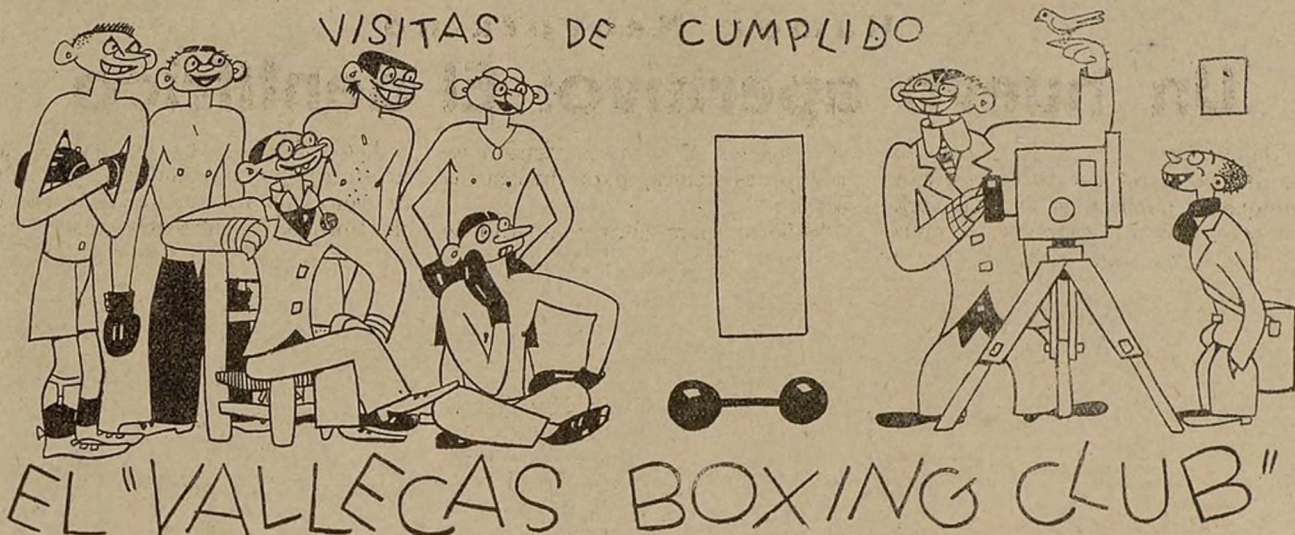 VISITAS DE CUMPLIDO
EL "VALLECAS BOXING CLUB"